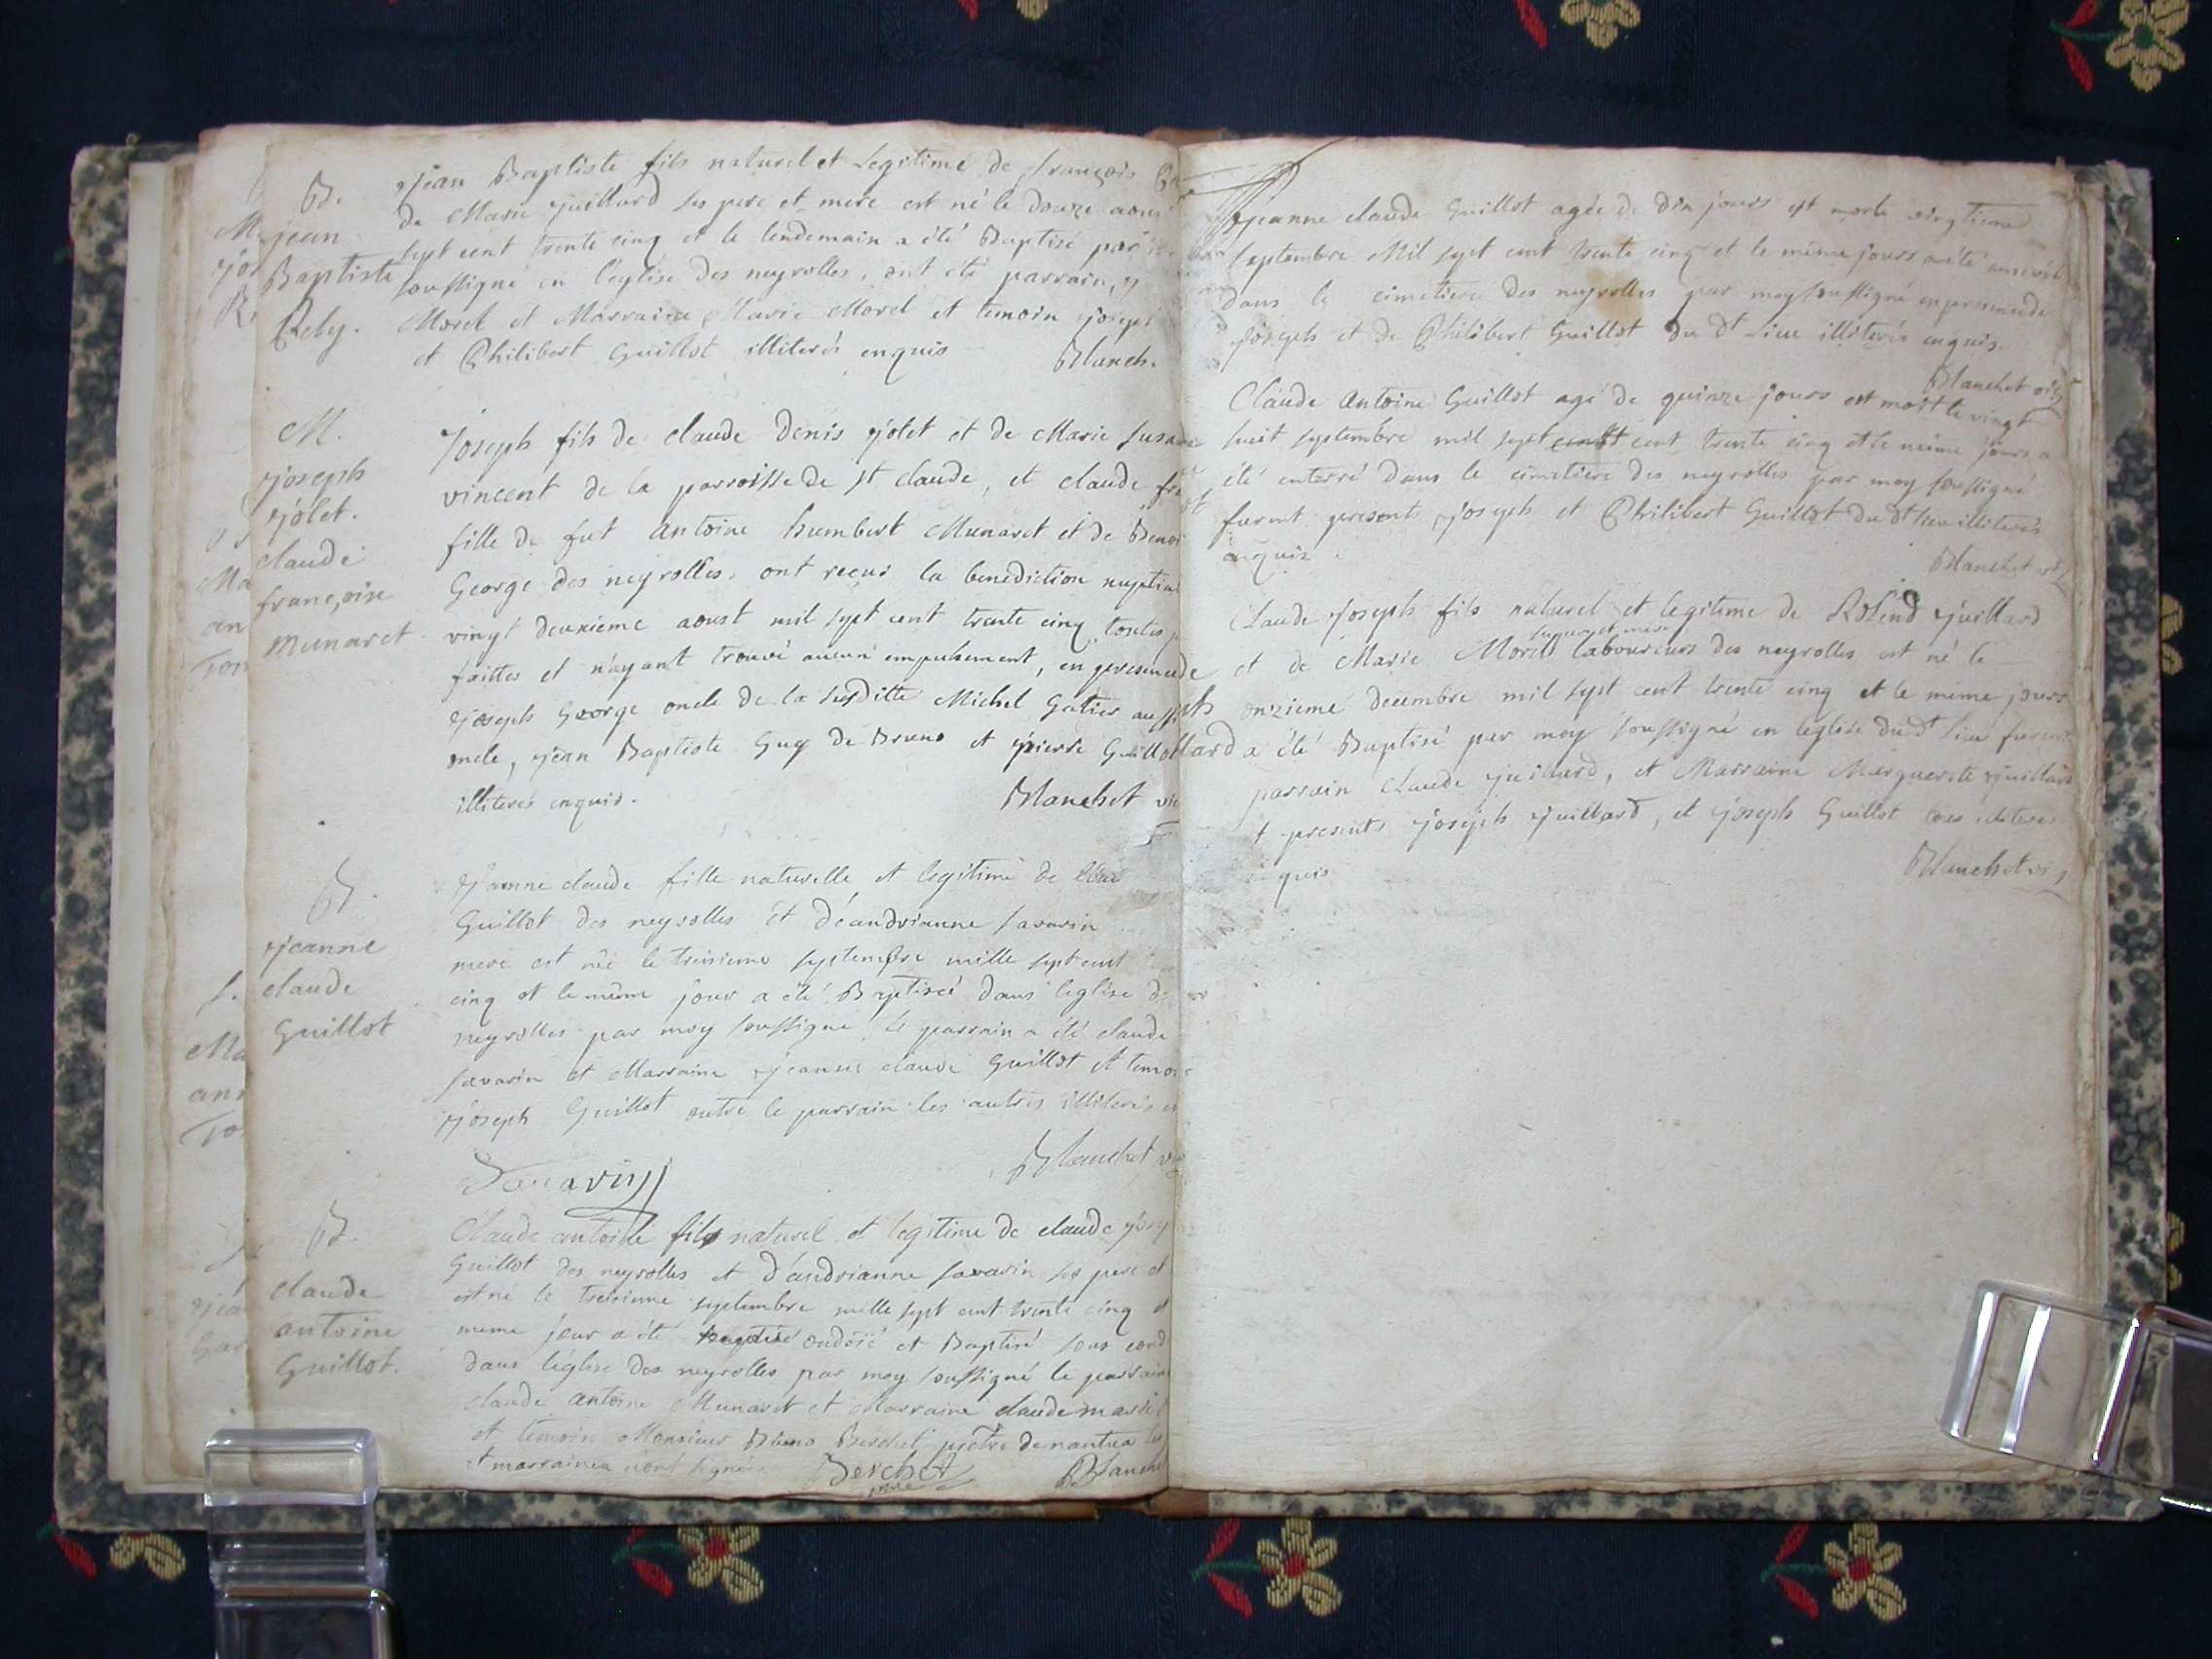 B.
jean
Baptiste
Rely.
jean Baptiste fils naturel et Legitime de françois
de Marie juillard ses pere et mere est né le douze aou
sept cent trente cinq et le lendemain a été Baptisé par
soussigné en l'eglise des neyrolles, ont été parrain,
Morel et Marraine Marie Morel et temoin joseph
et Philibert Guillot illiterés enquis Blanch
M.
joseph
jolet.
claude
françoise
Munaret
Joseph fils de claude Denis jolet et de Marie susanne
vincent de la parroisse de st claude, et claude fra
fille de fut Antoine humbert Munaret et de Benoi
George des neyrolles. ont reçus la benediction nuptial
vingt deuxieme aoust mil sept cent trente cinq toutes
faittes et n'ayant trouvé aucun empechement, en presence de
joseph George oncle de la susditte Michel Galier aussi
oncle, jean Baptiste Guy de Bruno et pierre Guillot
illiterés enquis. Blanchet vic
B.
jeanne
claude
Guillot
Jeanne claude fille naturelle et legitime de
Guillot des neyrolles et d'eandrianne savarin
mere est née le treisieme septembre mille sept cent
cinq et le même jour a été Baptiseé dans leglise d
neyrolles par moy soussigné, le parrain a été claude
savarin et Marraine jeanne claude Guillot et temoi
joseph Guillot outre le parrain les autres illiterés
Savarin Blanchet
B.
claude
antoine
Guillot.
Claude antoine fils naturel et legitime de claude jose
Guillot des neyrolles et d'andrianne savarin ses pere et
est né le treisieme septembre mille sept cent trente cinq et
meme jour a été baptisé ondoié et Baptisé sous cond
dans léglise des neyrolles par moy soussigné le parrain
claude antoine Munaret et Marraine claude marie
et temoin Monsieur Berchet pretre de nantua les
et marrainea nont signés Berchet Blanchet
jeanne claude Guillot agée de dix jours est morte vingtieme
septembre Mil sept cent trente cinq et le même jours a été enterré
dans le cimetiere des neyrolles par moy soussigné en presence de
joseph et de Philibert Guillot du dt Lieu illiterés enquis.
Blanchet vic
Claude Antoine Guillot agé de quinze jours est mort le vingt
huit septembre mil sept cent trente cinq et le même jours a
été enterré dans le cimetiere des neyrolles par moy soussigné
furent presents joseph et Philibert Guillot du dt lieu illiterés
enquis. Blanchet
Claude joseph fils naturel et legitime de Rolend juillard
et de Marie Morel ses pere et mere laboureurs des neyrolles est né le
onzieme decembre mil sept cent trente cinq et le même jours
a été Baptisé par moy soussigné en leglise du dt lieu furent
parrain claude juillard, et Marraine Marguerite juillard
et presents joseph juillard, et joseph Guillot tous illiterés
enquis Blanchet